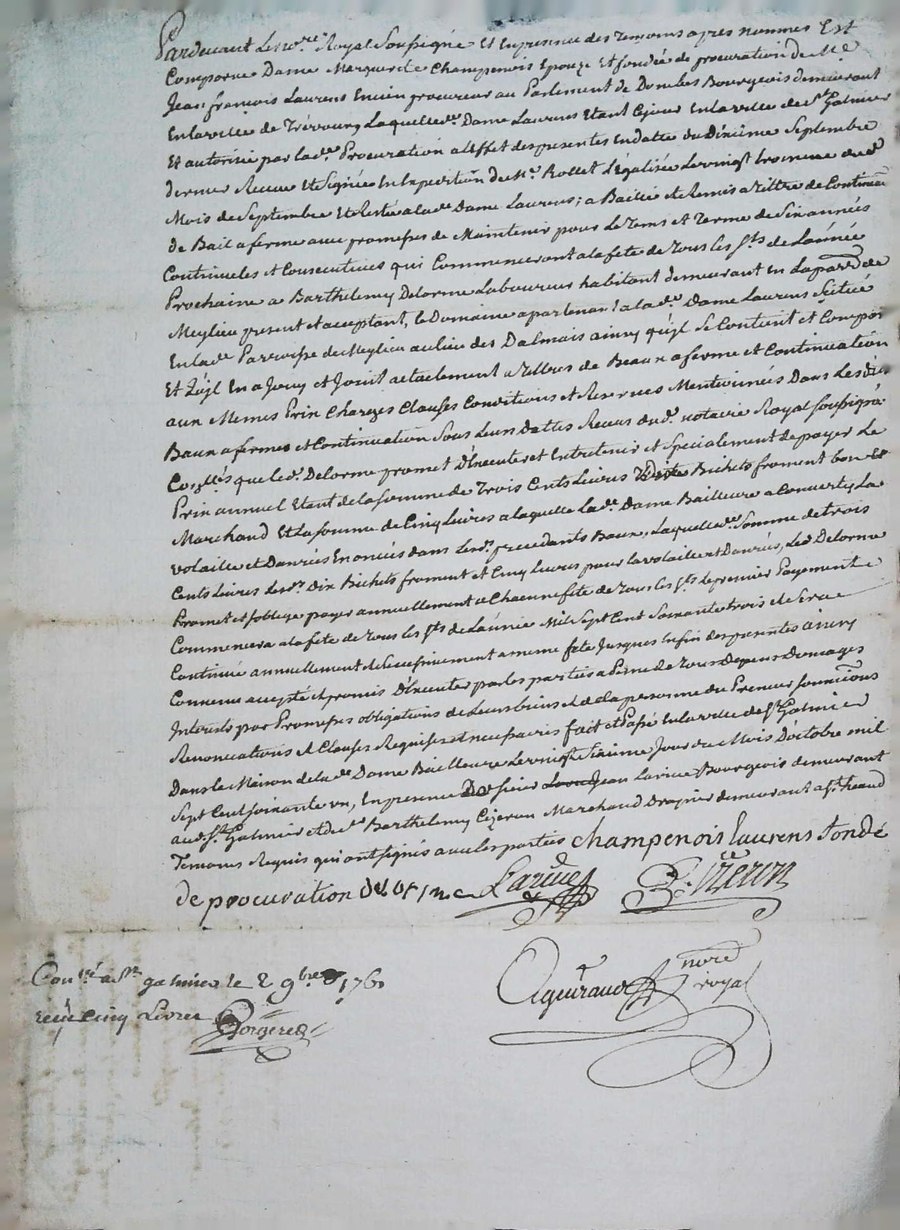 Pardevant Le no.re Royal Soussigné Et En presence des temoins apres nommés Est
Comparue Dame Marguerite Champenois Epouze Et fondée de procuration de M.e
Jean françois Laurens Encien procureur au Parlement de Dombes Bourgeois demeurant
En la ville de Trévoux Laquelle d.e Dame Laurens Etant En la ville de S.t Galmier
Et autorisée par lad.e Procuration a L'effet des presentes En datte du Dixième Septembre
dernier Recue Et Signée En Expedition de M.e Rollet Légalisée Le vingt troisieme dud.
Mois de Septembre Et Restée a lad.e Dame Laurens; a Baillé et Remis a tiltre de Continuã
de Bail a ferme aux promesses de Maintenir pour Le tems et terme de Six années
Continuelles et Consecutives qui Commenceront a la fete de tous Les S.ts de L'année
Prochaine a Barthelemy Delorme Laboureur habitant demeurant En La par. de
Meylieu present et acceptant, le Domaine apartenant a lad.e Dame Laurens Scitué
En lad.e Parroisse de Meylieu au lieu des Dalmais ainsy qu'il Se Contient et Comporte
Et qu'il En a Jouy et Jouit actuellement a tiltres de Beaux a ferme et Continuation
aux Memes Prix Charges Clauses Conditions et Reserves Mentionnées Dans Lesdits
Baux a fermes et Continuation Sous Leurs Dattes Recus dud. notaire Royal Soussigné
que led. Delorme promet D'Executer et Entretenir et Specialement de payer Le
Prix annuel Etant de la somme de Trois Cents Livres Bichets froment bon et
Marchand Et La somme de Cinq Livres a laquelle La d.e Dame Bailleure a Converty La
volaille et Danrées Enoncées dans Lesd. precedants Baux, Laquelle d.e Somme de trois
Cents Livres Lesd. Dix Bichets froment et Cinq Livres pour la volaille et Danrées, Led. Delorme
Promet et s'oblige payer annuellement a Chacune fete de tous Les S.ts Le premier Payement
Commencera a la fete de tous Les S.ts de L'année Mil Sept Cent Soixante trois et Sera
Continué annuellement et Successivement a meme fete Jusques En fin des presentes ainsy
Convenu accepté et promis D'Executer par les parties a Peine de tous Depens Domages
Interests par Promesses obligations de Leurs biens et de la personne du Preneur
Renonciations et Clauses Requises et necessaires fait et Passé En la ville de S.t Galmier
Dans la Maison de lad.e Dame Bailleure Le vingt Sixieme Jour du Mois D'octobre mil
Sept Cent Soixante un, En presence De Sieur Jean Larive Bourgeois demeurant
aud. S.t Galmier et de S.r Barthelemy Cizeron Marchand Drapier demeurant a S.t héand
Temoins Requis qui ont signés avec les parties champenois laurens fondé
de procuration Larive B. Cizeron
Con.lé a S.t galmier le 2 9bre 176
reçu Cinq Livres
not.re royal